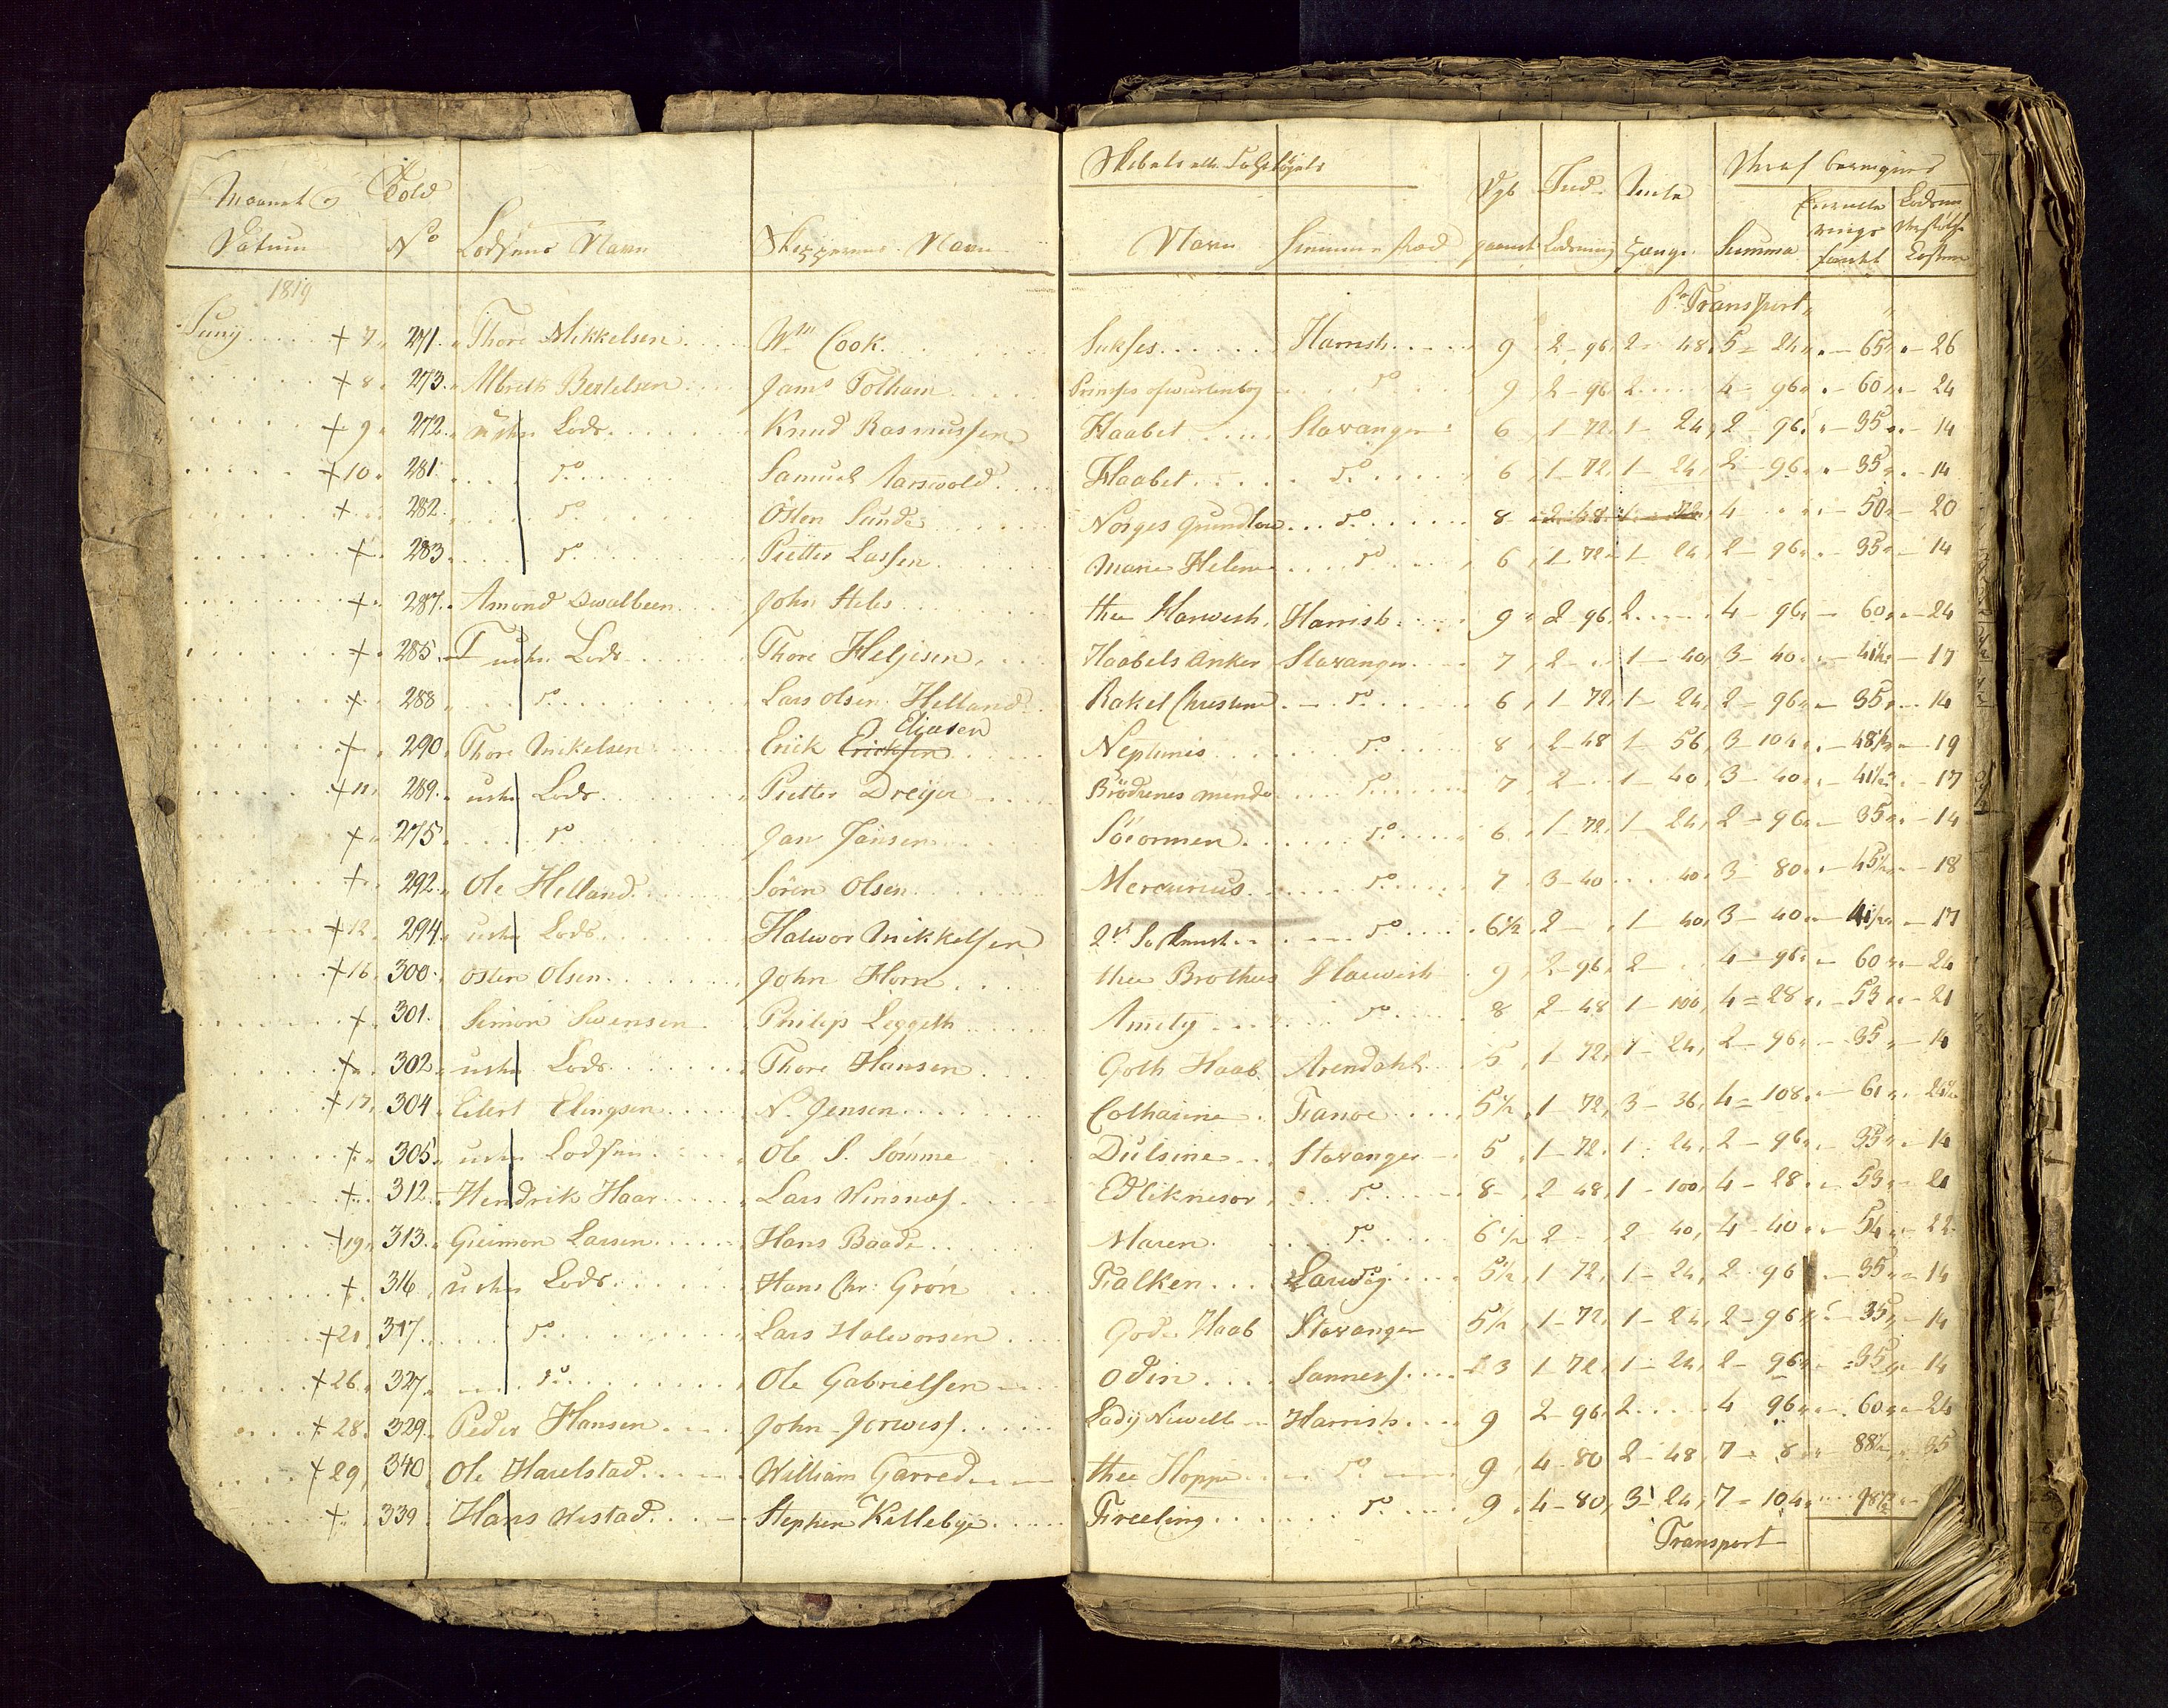 Maanet og Told Skibets eller Fartøjets Heraf beregnes
Datum No Lodsens Navn Skipperens Navn Navn Hiemmestæd Dyb gaaend Ind Lodsning Summa
1819 Pr Transport
Juny + 7 271 Thore Mikkelsen Wm Cook Sukses Harrish 9 2-96 2 48 5 = 24 65 26
+ 8 273 Albreth Bertelsen Jams Tolham 9 2-96 2 4-96 60 24
+ 9 272 uden Lods Knud Rasmussen Haabet Stavanger 6 1-72 1-24 2-96 35 14
+ 10 281 do Samuel Haabet do 6 1-72 1-24 2-96 35 14
+ 282 do Østen Sunde Norges do 8 2-48 1-72 4 50 20
+ 283 do Pætter Lassen Marie Helene do 6 1-72 1-24 2-96 35 14
+ 287 Amond Swalbeen John Stiles thee Harwish Harrish 9 2-96 2 4-96 60 24
+ 285 uden Lods Thore Heljesen Haabets Anker Stavanger 7 2 1-40 3-40 41½ 17
+ 288 do Lars Olsen Helland Rakel Christine do 6 1-72 1-24 2-96 35 14
Eliasen
+ 290 Thore Mikelsen Erick Ericksen Neptunis do 8 2-48 1-56 3-104 48½ 19
+ 11 289 uden Lods Pætter Dreyer Brødrenes minde do 7 2 1-40 3-40 41½ 17
+ 275 do Jan Jansen Søormen do 6 1-72 1-24 2-96 35 14
+ 292 Ole Helland Søren Olsen Mercurius do 7 3-40 40 3 80 45½ 18
+ 12 294 uden Lods Halwor Mikkelsen do 6½ 2 1 40 3-40 41½ 17
+ 16 300 Østen Olsen John Horn thee Brothers Harwish 9 2-96 2 4-96 60 24
+ 301 Simon Swensen Philip Leggeth Amity do 8 2-48 1-100 4=28 53 21
+ 302 uden Lods Thore Hansen Goth Haab Arendahl 5 1-72 1-24 2-96 35 14
+ 17 304 Eilert Elingsen N. Jensen Catharine Fanoe 5½ 1-72 3-36 4=108 61 24½
+ 305 uden Lodsen Ole S. Sømme Dulsine Stavanger 5 1-72 1-24 2-96 35 14
+ 312 Hendrik Haar Lars Winsnes do 8 2 48 1-100 4-28 53 21
+ 19 313 Giermon Larsen Hans Baade Maren do 6½ 2 2 40 4-40 54 22
+ 316 uden Lods Hans Chr. Grøn Falken Laurvig 5½ 1 72 1-24 2 96 35 14
+ 21 317 do Lars Halworsen Gode Haab Stavanger 5½ 1-72 1-24 2-96 35 14
+ 26 327 do Ole Gabrielsen Odin Sannes 3 1 72 1-24 2-96 35 14
+ 28 329 Peder Hansen John Jerwess Lady Newell Harrish 9 2-96 2 4 96 60 24
+ 29 340 Ole Harelstad William Garred thee Hoppe do 9 4-80 2-48 7=8 88½ 35
+ 339 Hans Westad Stephen Killebye Freeling do 9 4-80 3-24 7=104 98½
Transport